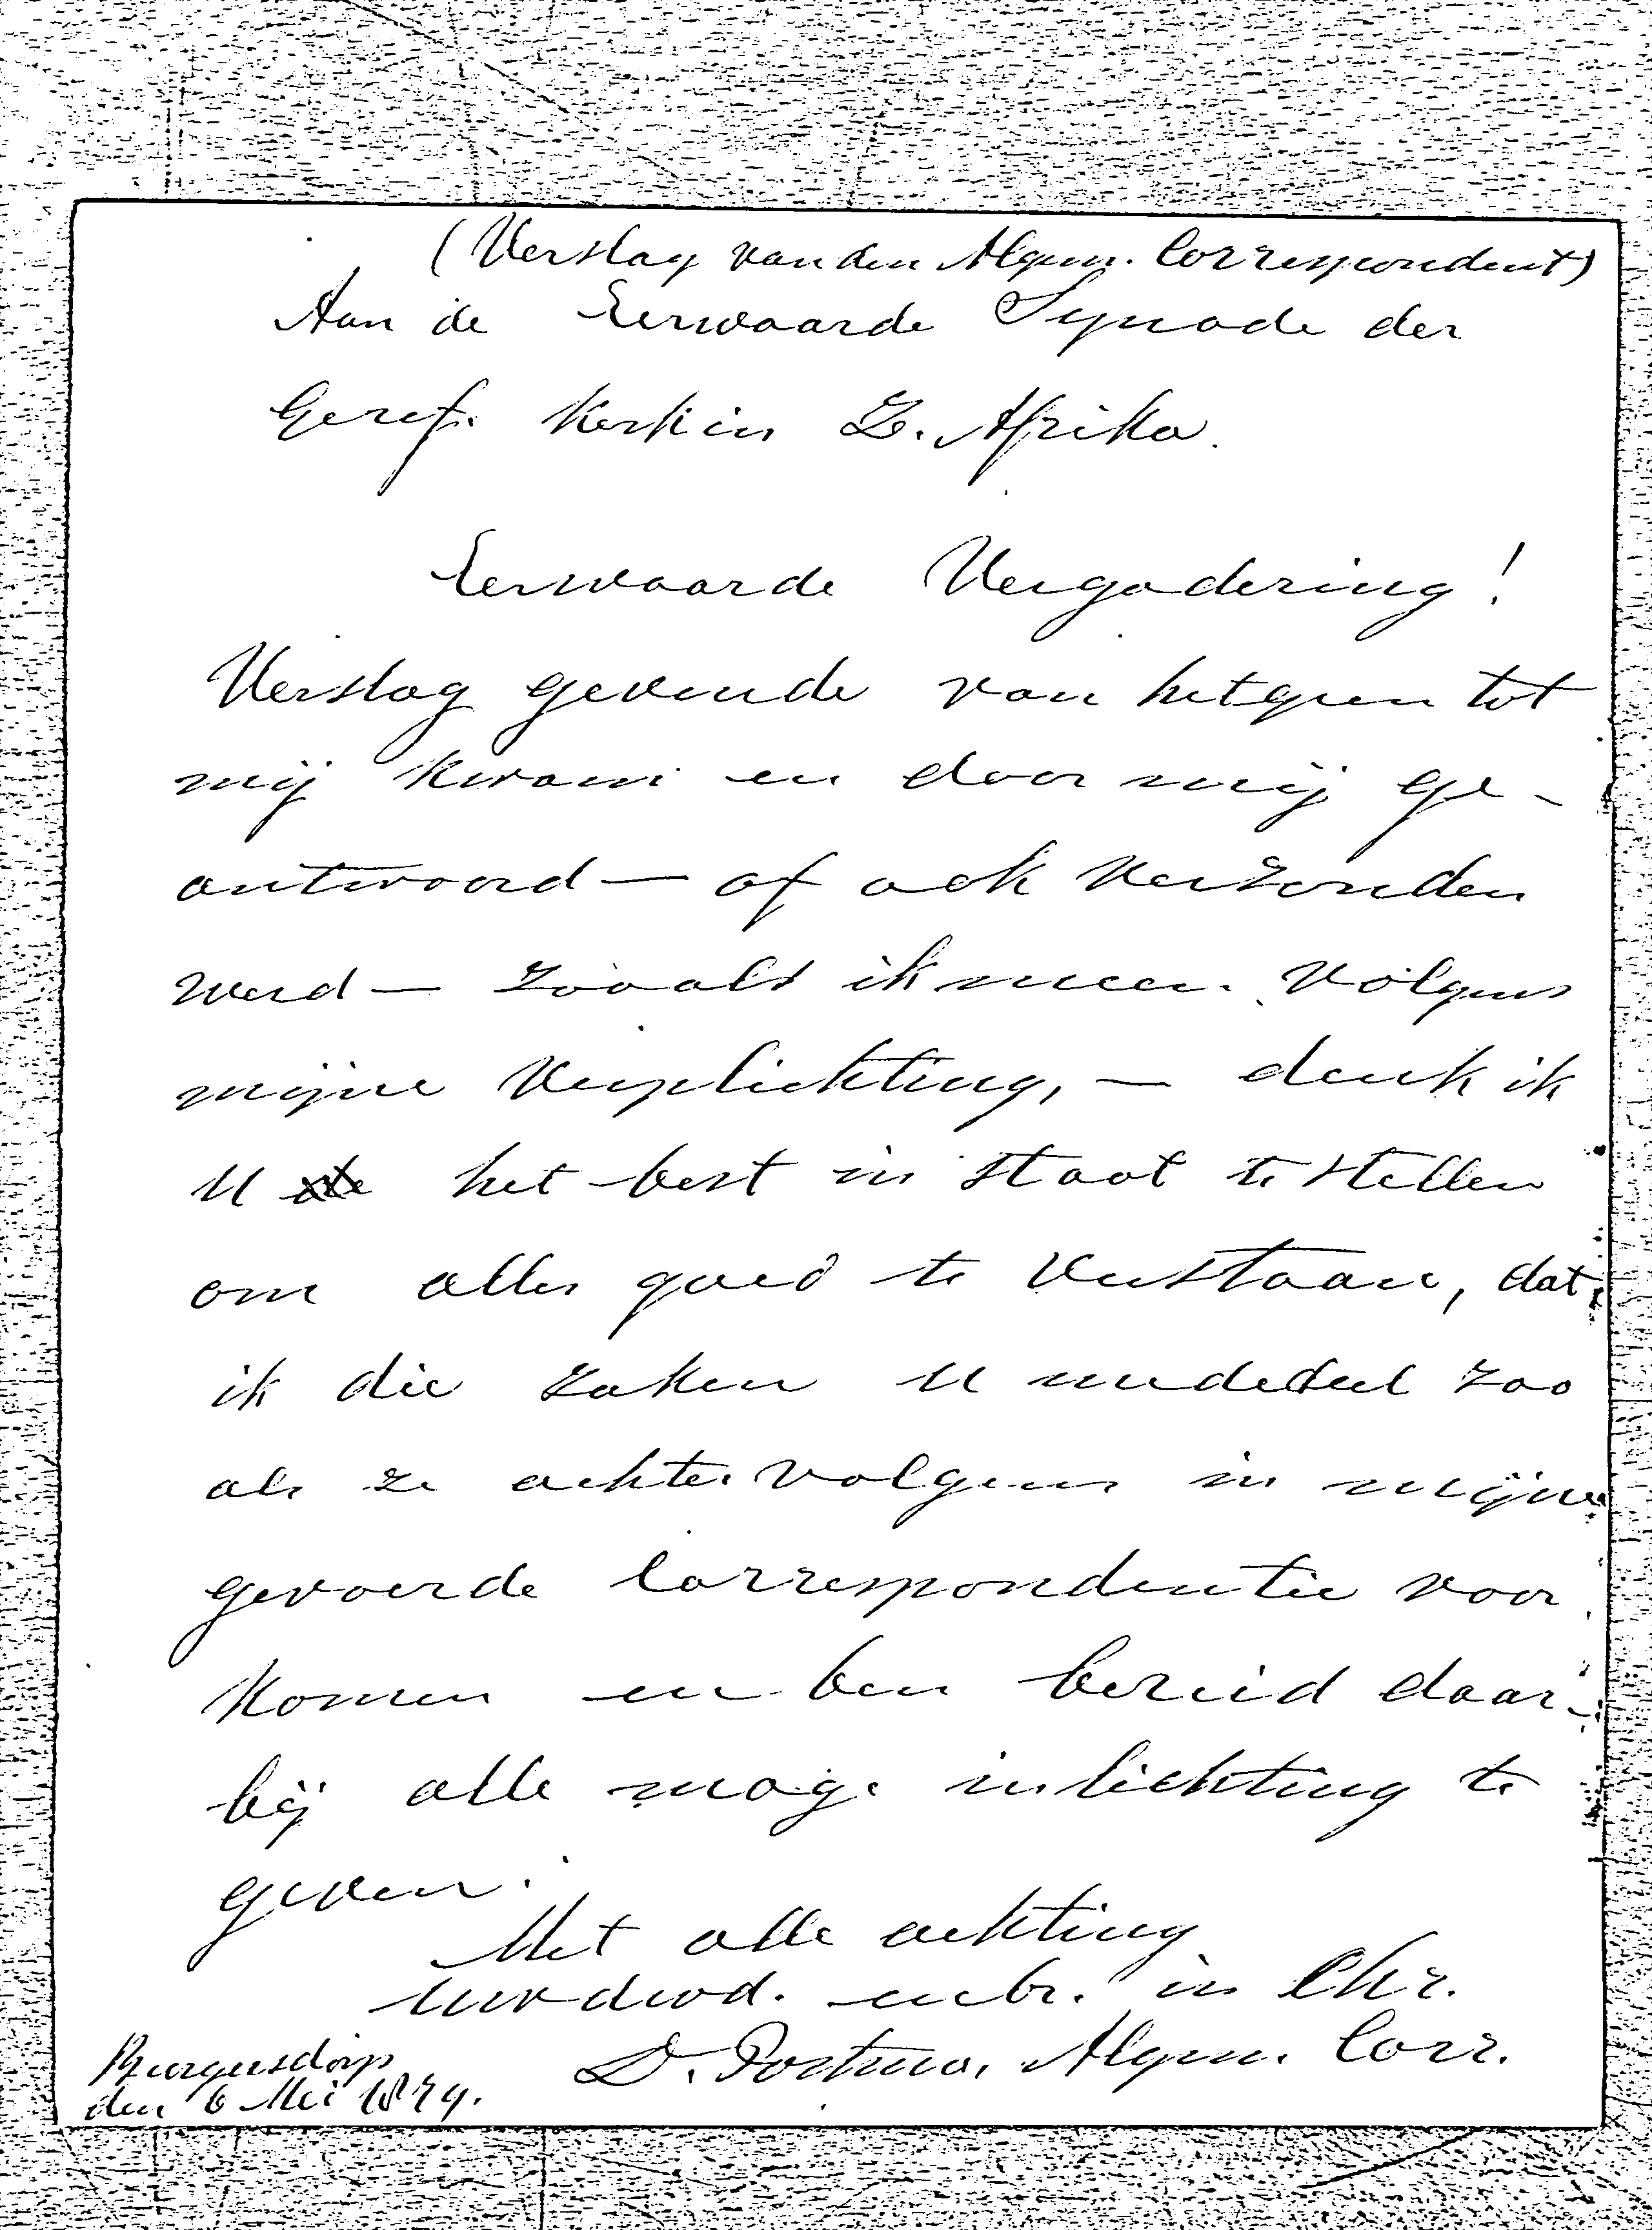 (Verslag van den Algem. Correspondent)
Aan de Eerwaarde Synode der
Geref. Kerk in Z. Afrika.
Eerwaarde Vergadering!
Verslag gevende van hetgeen tot
mij kwam en door mij ge-
antwoord — of ook verzonden
werd — zooals ik meen. Volgens
mijne verplichting, — denk ik
U het best in staat te stellen
om alles goed te verstaan, dat
ik die zaken U mededeel zoo
als ze achtervolgens in mijne
gevoerde Correspondentie voor
komen en ben bereid daar-
bij alle mog. inlichting te
geven.
Met alle achting
mbr. in Chr.
D. Postma, Algem. Corr.
Burgersdorp
den 6 Mei 1879.